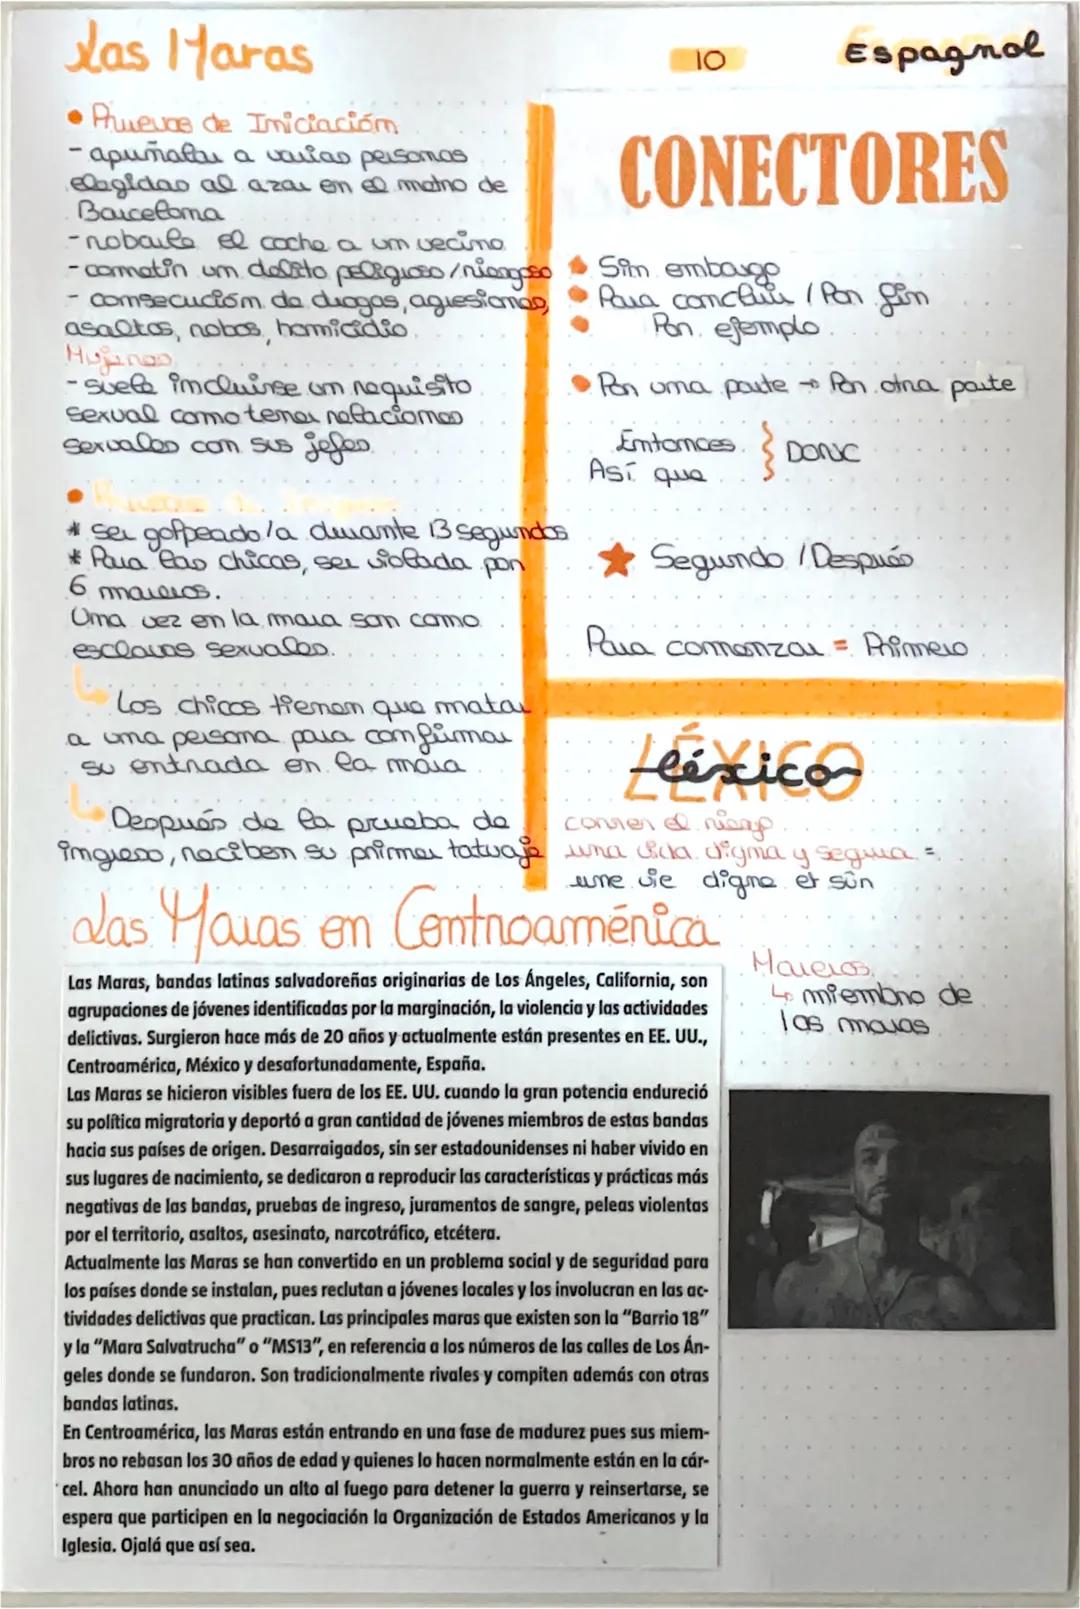 Las Maras
10
Espagnol
• Pruevas de Iniciación
- apuñalar a varias personas
elegidas al azar en el metro de
Barcelona
- robarle el coche a un vecino
- cometir un delito peligroso/riesgoso
- consecución de drogas, agresiones,
asaltos, robos, homicidio
Mujeres
- suele incluirse un requisito
sexual como tener relaciones
sexuales con sus jefes.
• Pruebas de Ingreso
* ser golpeado/a durante 13 segundos
* Para las chicas, ser violada por
6 mareros.
Una vez en la mara son como
esclavas sexuales.
↳ Los chicos tienen que matar
a una persona para confirmar
su entrada en la mara
↳ Después de la prueba de
ingreso, reciben su primer tatuaje
CONECTORES
Sin embargo
Para concluir / Por fin
Por ejemplo
Por una parte → Por otra parte
Entonces
Así que
DONC
Segundo / Después
Para comenzar = Primero
LÉXICO
léxico
correr el riesgo
una vida digna y segura =
une vie digne et sûr
Mareros
↳ miembro de
las maras
Las Maras en Centroamérica
Las Maras, bandas latinas salvadoreñas originarias de Los Ángeles, California, son
agrupaciones de jóvenes identificadas por la marginación, la violencia y las actividades
delictivas. Surgieron hace más de 20 años y actualmente están presentes en EE. UU.,
Centroamérica, México y desafortunadamente, España.
Las Maras se hicieron visibles fuera de los EE. UU. cuando la gran potencia endureció
su política migratoria y deportó a gran cantidad de jóvenes miembros de estas bandas
hacia sus países de origen. Desarraigados, sin ser estadounidenses ni haber vivido en
sus lugares de nacimiento, se dedicaron a reproducir las características y prácticas más
negativas de las bandas, pruebas de ingreso, juramentos de sangre, peleas violentas
por el territorio, asaltos, asesinato, narcotráfico, etcétera.
Actualmente las Maras se han convertido en un problema social y de seguridad para
los países donde se instalan, pues reclutan a jóvenes locales y los involucran en las ac-
tividades delictivas que practican. Las principales maras que existen son la "Barrio 18"
y la "Mara Salvatrucha" o "MS13", en referencia a los números de las calles de Los Án-
geles donde se fundaron. Son tradicionalmente rivales y compiten además con otras
bandas latinas.
En Centroamérica, las Maras están entrando en una fase de madurez pues sus miem-
bros no rebasan los 30 años de edad y quienes lo hacen normalmente están en la cár-
cel. Ahora han anunciado un alto al fuego para detener la guerra y reinsertarse, se
espera que participen en la negociación la Organización de Estados Americanos y la
Iglesia. Ojalá que así sea.